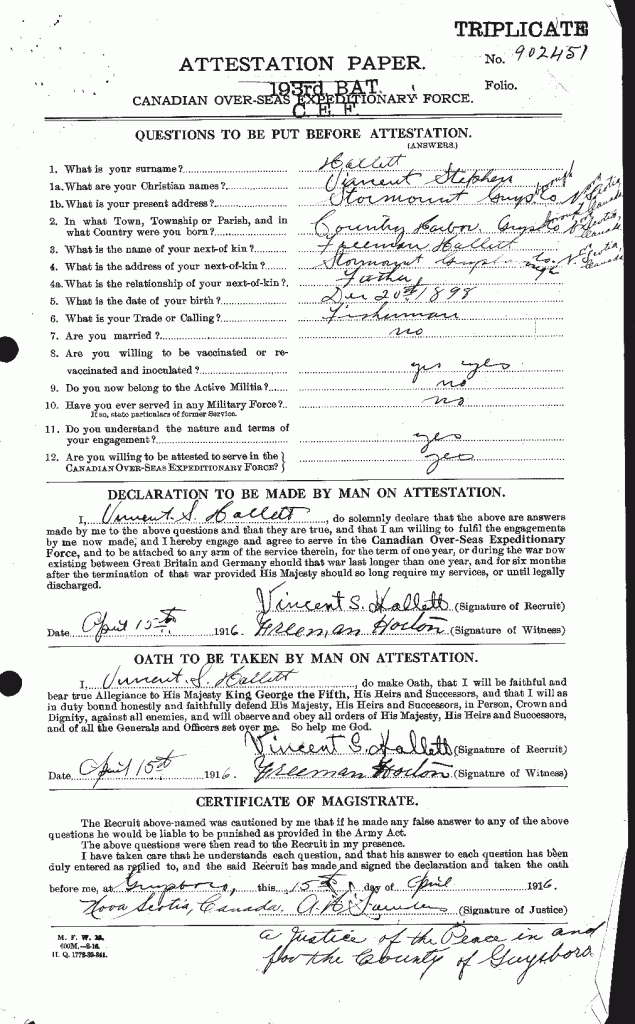 TRIPLICATE
ATTESTATION PAPER.
No. 902451
193rd BAT.
Folio.
CANADIAN OVER-SEAS EXPEDITIONARY FORCE.
C. E. F.
QUESTIONS TO BE PUT BEFORE ATTESTATION.
(ANSWERS.)
1. What is your surname? Hallett
1a. What are your Christian names? Vincent Stephen
1b. What is your present address? Stormount Guysboro Co N Scotia, Canada
2. In what Town, Township or Parish, and in
what Country were you born? Country Harbor, Guysboro Co N Scotia, Canada
3. What is the name of your next-of kin? Freeman Hallett
4. What is the address of your next-of-kin? Stormount Guysboro Co. N Scotia, Canada
4a. What is the relationship of your next-of-kin? Father
5. What is the date of your birth? Dec 20th 1898
6. What is your Trade or Calling? Fisherman
7. Are you married? no
8. Are you willing to be vaccinated or re-
vaccinated and inoculated? yes yes
9. Do you now belong to the Active Militia? no
10. Have you ever served in any Military Force? no
If so, state particulars of former Service.
11. Do you understand the nature and terms of
your engagement? yes
12. Are you willing to be attested to serve in the
CANADIAN OVER-SEAS EXPEDITIONARY FORCE? yes
DECLARATION TO BE MADE BY MAN ON ATTESTATION.
I, Vincent S. Hallett, do solemnly declare that the above are answers
made by me to the above questions and that they are true, and that I am willing to fulfil the engagements
by me now made, and I hereby engage and agree to serve in the Canadian Over-Seas Expeditionary
Force, and to be attached to any arm of the service therein, for the term of one year, or during the war now
existing between Great Britain and Germany should that war last longer than one year, and for six months
after the termination of that war provided His Majesty should so long require my services, or until legally
discharged.
Vincent S. Hallett (Signature of Recruit)
Date April 15th 1916. Freeman Horton (Signature of Witness)
OATH TO BE TAKEN BY MAN ON ATTESTATION.
I, Vincent S. Hallett, do make Oath, that I will be faithful and
bear true Allegiance to His Majesty King George the Fifth, His Heirs and Successors, and that I will as
in duty bound honestly and faithfully defend His Majesty, His Heirs and Successors, in Person, Crown and
Dignity, against all enemies, and will observe and obey all orders of His Majesty, His Heirs and Successors,
and of all the Generals and Officers set over me. So help me God.
Vincent S. Hallett (Signature of Recruit)
Date April 15th 1916. Freeman Horton (Signature of Witness)
CERTIFICATE OF MAGISTRATE.
The Recruit above-named was cautioned by me that if he made any false answer to any of the above
questions he would be liable to be punished as provided in the Army Act.
The above questions were then read to the Recruit in my presence.
I have taken care that he understands each question, and that his answer to each question has been
duly entered as replied to, and the said Recruit has made and signed the declaration and taken the oath
before me, at Guysboro, this 15th day of April 1916.
Nova Scotia, Canada. (Signature of Justice)
M. F. W. 23.
600M.—2-16.
H. Q. 1772-39-841.
a Justice of the Peace in and
for the County of Guysboro